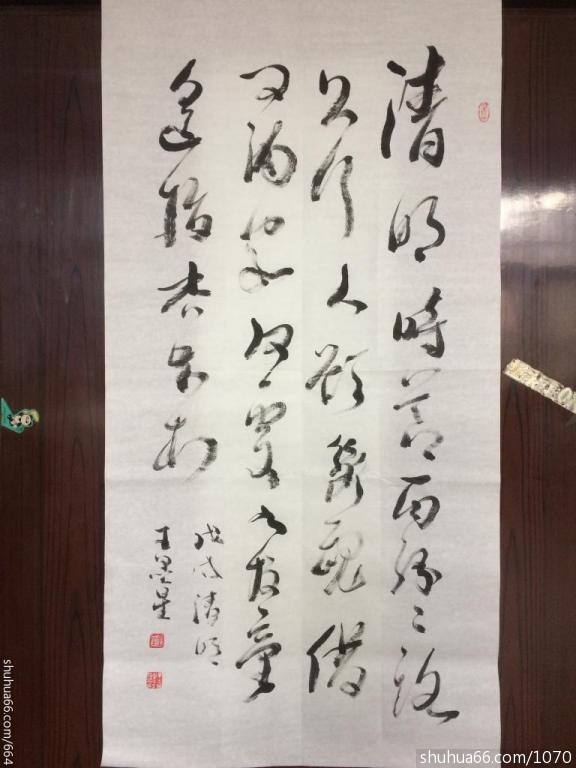 清明時節雨紛々路
上行人欲斷魂借
问酒家何處有牧童
遥指杏花村
戊戌清明
王墨星
shuhua66.com/664
shuhua66.com/1070